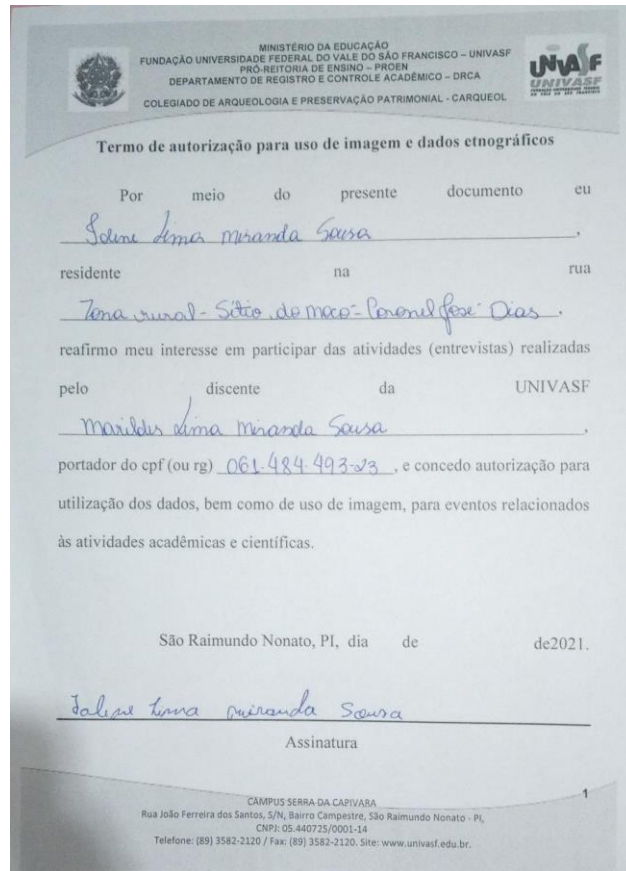 MINISTÉRIO DA EDUCAÇÃO
FUNDAÇÃO UNIVERSIDADE FEDERAL DO VALE DO SÃO FRANCISCO – UNIVASF
PRÓ-REITORIA DE ENSINO – PROEN
DEPARTAMENTO DE REGISTRO E CONTROLE ACADÊMICO – DRCA
COLEGIADO DE ARQUEOLOGIA E PRESERVAÇÃO PATRIMONIAL - CARQUEOL
UNIVASF
Termo de autorização para uso de imagem e dados etnográficos
Por meio do presente documento eu
Lima Miranda Sousa,
residente na rua
Zona rural - Sítio do moco - Coronel José Dias,
reafirmo meu interesse em participar das atividades (entrevistas) realizadas
pelo discente da UNIVASF
Marildes Lima Miranda Sousa,
portador do cpf (ou rg) 061.484.493-23, e concedo autorização para
utilização dos dados, bem como de uso de imagem, para eventos relacionados
às atividades acadêmicas e científicas.
São Raimundo Nonato, PI, dia de de2021.
Lima Miranda Sousa
Assinatura
1
CAMPUS SERRA DA CAPIVARA
Rua João Ferreira dos Santos, S/N, Bairro Campestre, São Raimundo Nonato - PI,
CNPJ: 05.440725/0001-14
Telefone: (89) 3582-2120 / Fax: (89) 3582-2120. Site: www.univasf.edu.br.